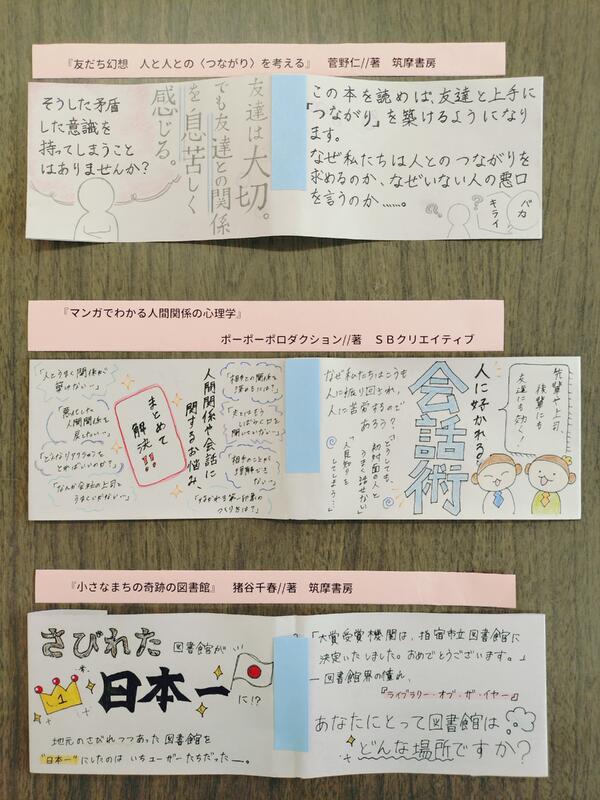 『友だち幻想　人と人との〈つながり〉を考える』　菅野仁//著　筑摩書房
友達は大切。
でも友達との関係
を息苦しく
感じる。
そうした矛盾
した意識を
持ってしまうこと
はありませんか?
この本を読めば、友達と上手に
「つながり」を築けるようになり
ます。
なぜ私たちは人とのつながりを
求めるのか、なぜいない人の悪口
を言うのか……。
バカ
キライ
『マンガでわかる人間関係の心理学』
ポーポーポロダクション//著　ＳＢクリエイティブ
人間関係や会話に
関するお悩み、
まとめて
解決!!
「人とうまく関係が
築けない…」
「悪化した
人間関係を
戻したい…」
「どんなリアクションを
とればいいの?」
「なんか会社の上司と
うまくいかない…」
「相手との関係を
深めるには?」
「相手のことが
理解できない…」
「好かれる第一印象の
つくり方は?」
先輩や上司、
後輩にも
友達にも効く!
人に好かれる
会話術
なぜ私たちはこうも
人に振り回され、
人に苦労するので
あろう?
「どうしても、
初対面の人と
うまく話せない」
「人見知りを
してしまう…」
『小さなまちの奇跡の図書館』　猪谷千春//著　筑摩書房
さびれた 図書館が…
日本一 に!?
1
地元のさびれつつあった図書館を
"日本一"にしたのは いちユーザーたちだった—。
「大賞受賞機関は、指宿市立図書館に
決定いたしました。おめでとうございます。」
—図書館界の憧れ、
『ライブラリー・オブ・ザ・イヤー』
あなたにとって図書館は
どんな場所ですか?